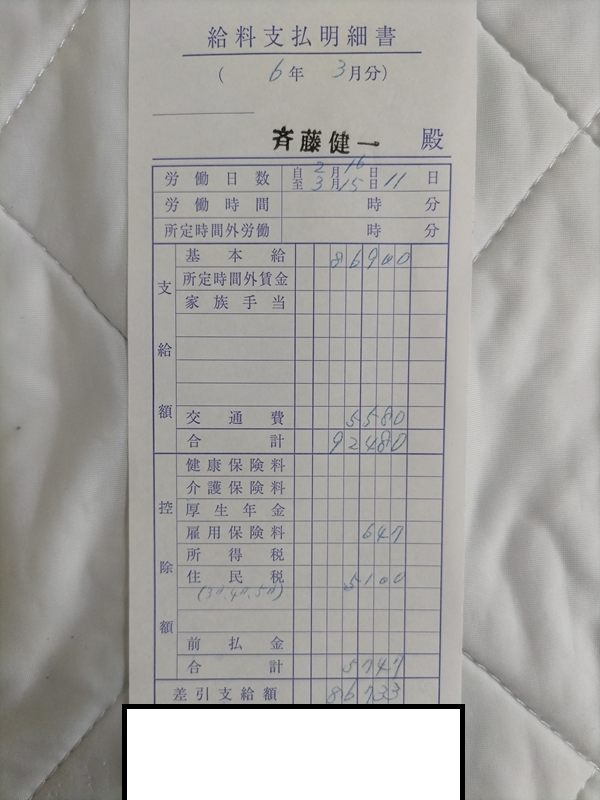 給料支払明細書
( 6年 3月分)
斉藤健一 殿
労働日数 自 2月16日 至 3月15日 11日
労働時間 時 分
所定時間外労働 時 分
支給額
基本給 86900
所定時間外賃金
家族手当
交通費 5580
合計 92480
控除額
健康保険料
介護保険料
厚生年金
雇用保険料 647
所得税
住民税 5100
(3月,4月,5月)
前払金
合計 5747
差引支給額 86733